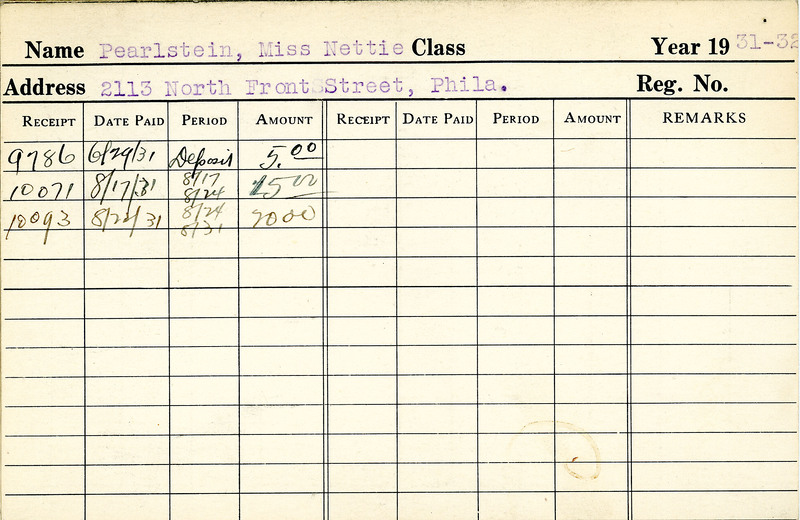 Name Pearlstein, Miss Nettie Class Year 19 31-32
Address 2113 North Front Street, Phila. Reg. No.
RECEIPT DATE PAID PERIOD AMOUNT RECEIPT DATE PAID PERIOD AMOUNT REMARKS
9786 6/29/31 Deposit 5.00
10071 8/17/31 8/17 8/24 15 00
10093 8/22/31 8/24 8/31 20 00